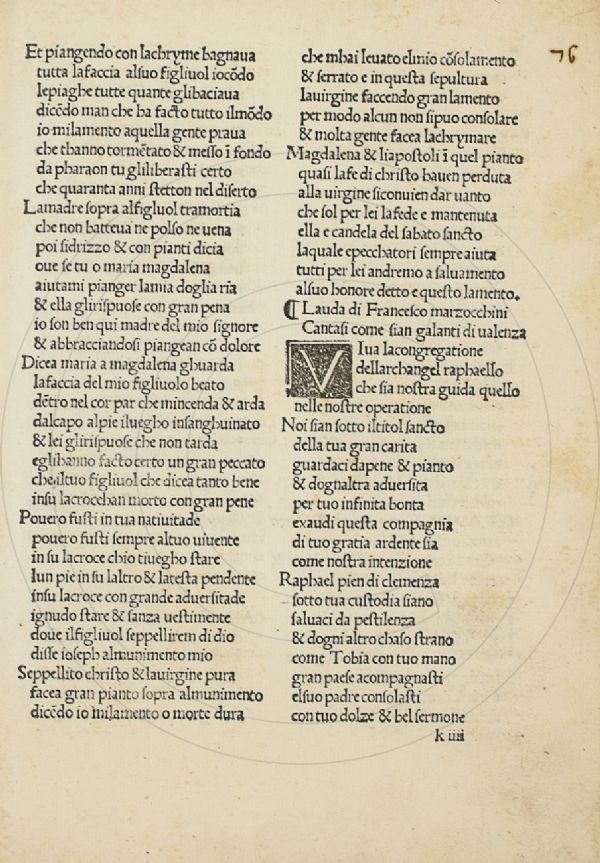 76
Et piangendo con lachryme bagnaua
tutta lafaccia alsuo figliuol iocōdo
lepiaghe tutte quante glibaciaua
dicēdo man che ha facto tutto ilmōdo
io milamento aquella gente praua
che thanno tormētato & messo ī fondo
da pharaon tu gliliberasti certo
che quaranta anni stetton nel diserto
Lamadre sopra alfigliuol tramortia
che non batteua ne polso ne uena
poi sidrizzo & con pianti dicia
oue se tu o maria magdalena
aiutami pianger lamia doglia ria
& ella glirispuose con gran pena
io son ben qui madre del mio signore
& abbracciandosi piangean cō dolore
Dicea maria a magdalena ghuarda
lafaccia del mio figliuolo beato
dētro nel cor par che mincenda & arda
dalcapo alpie iluegho insanghuinato
& lei glirispuose che non tarda
eglihanno facto certo un gran peccato
cheiltuo figliuol che dicea tanto bene
insu lacrocehan morto con gran pene
Pouero fusti in tua natiuitade
pouero fusti sempre altuo uiuente
in su lacroce chio tiuegho stare
lun pie in su laltro & latesta pendente
insu lacroce con grande aduersitade
ignudo stare & sanza uestimente
doue ilfigliuol seppellirem di dio
disse ioseph almunimento mio
Seppellito christo & lauirgine pura
facea gran pianto sopra almunimento
dicēdo io milamento o morte dura
che mhai leuato elmio cōsolamento
& serrato e in questa sepultura
lauirgine faccendo gran lamento
per modo alcun non sipuo consolare
& molta gente facea lachrymare
Magdalena & liapostoli ī quel pianto
quasi lafe di christo hauen perduta
alla uirgine siconuien dar uanto
che sol per lei lafede e mantenuta
ella e candela del sabato sancto
laquale epecchatori sempre aiuta
tutti per lei andremo a saluamento
alsuo honore detto e questo lamento.
¶ Lauda di Francesco marzocchini
Cantasi come sian galanti di ualenza
VIua lacongregatione
dellarchangel raphaello
che sia nostra guida quello
nelle nostre operatione
Noi sian sotto iltitol sancto
della tua gran carita
guardaci dapene & pianto
& dognaltra aduersita
per tuo infinita bonta
exaudi questa compagnia
di tuo gratia ardente sia
come nostra intenzione
Raphael pien di clemenza
sotto tua custodia siano
saluaci da pestilenza
& dogni altro chaso strano
come Tobia con tuo mano
gran paese acompagnasti
elsuo padre consolasti
con tuo dolze & bel sermone
k iiii